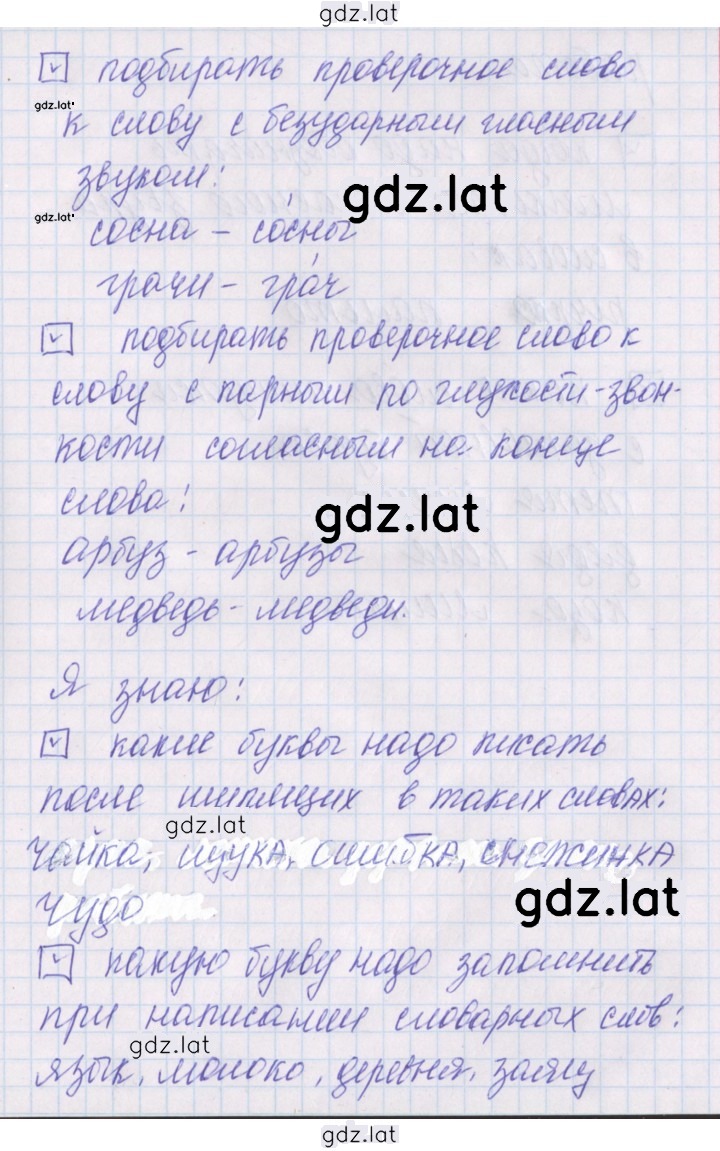 gdz.lat
☑ подбирать проверочное слово
gdz.lat
к слову с безударным гласным
звуком:
gdz.lat
gdz.lat
сосна - со́сны
грачи - гра́ч
☑ подбирать проверочное слово к
слову с парным по глухости-звон-
кости согласным на конце
слова:
gdz.lat
арбуз - арбузы
медведь - медведи.
Я знаю:
☑ какие буквы надо писать
после шипящих в таких словах:
gdz.lat
чайка, щука, ошибка, снежинка
gdz.lat
чудо
☑ какую букву надо запомнить
при написании словарных слов:
gdz.lat
язык, молоко, деревня,
gdz.lat